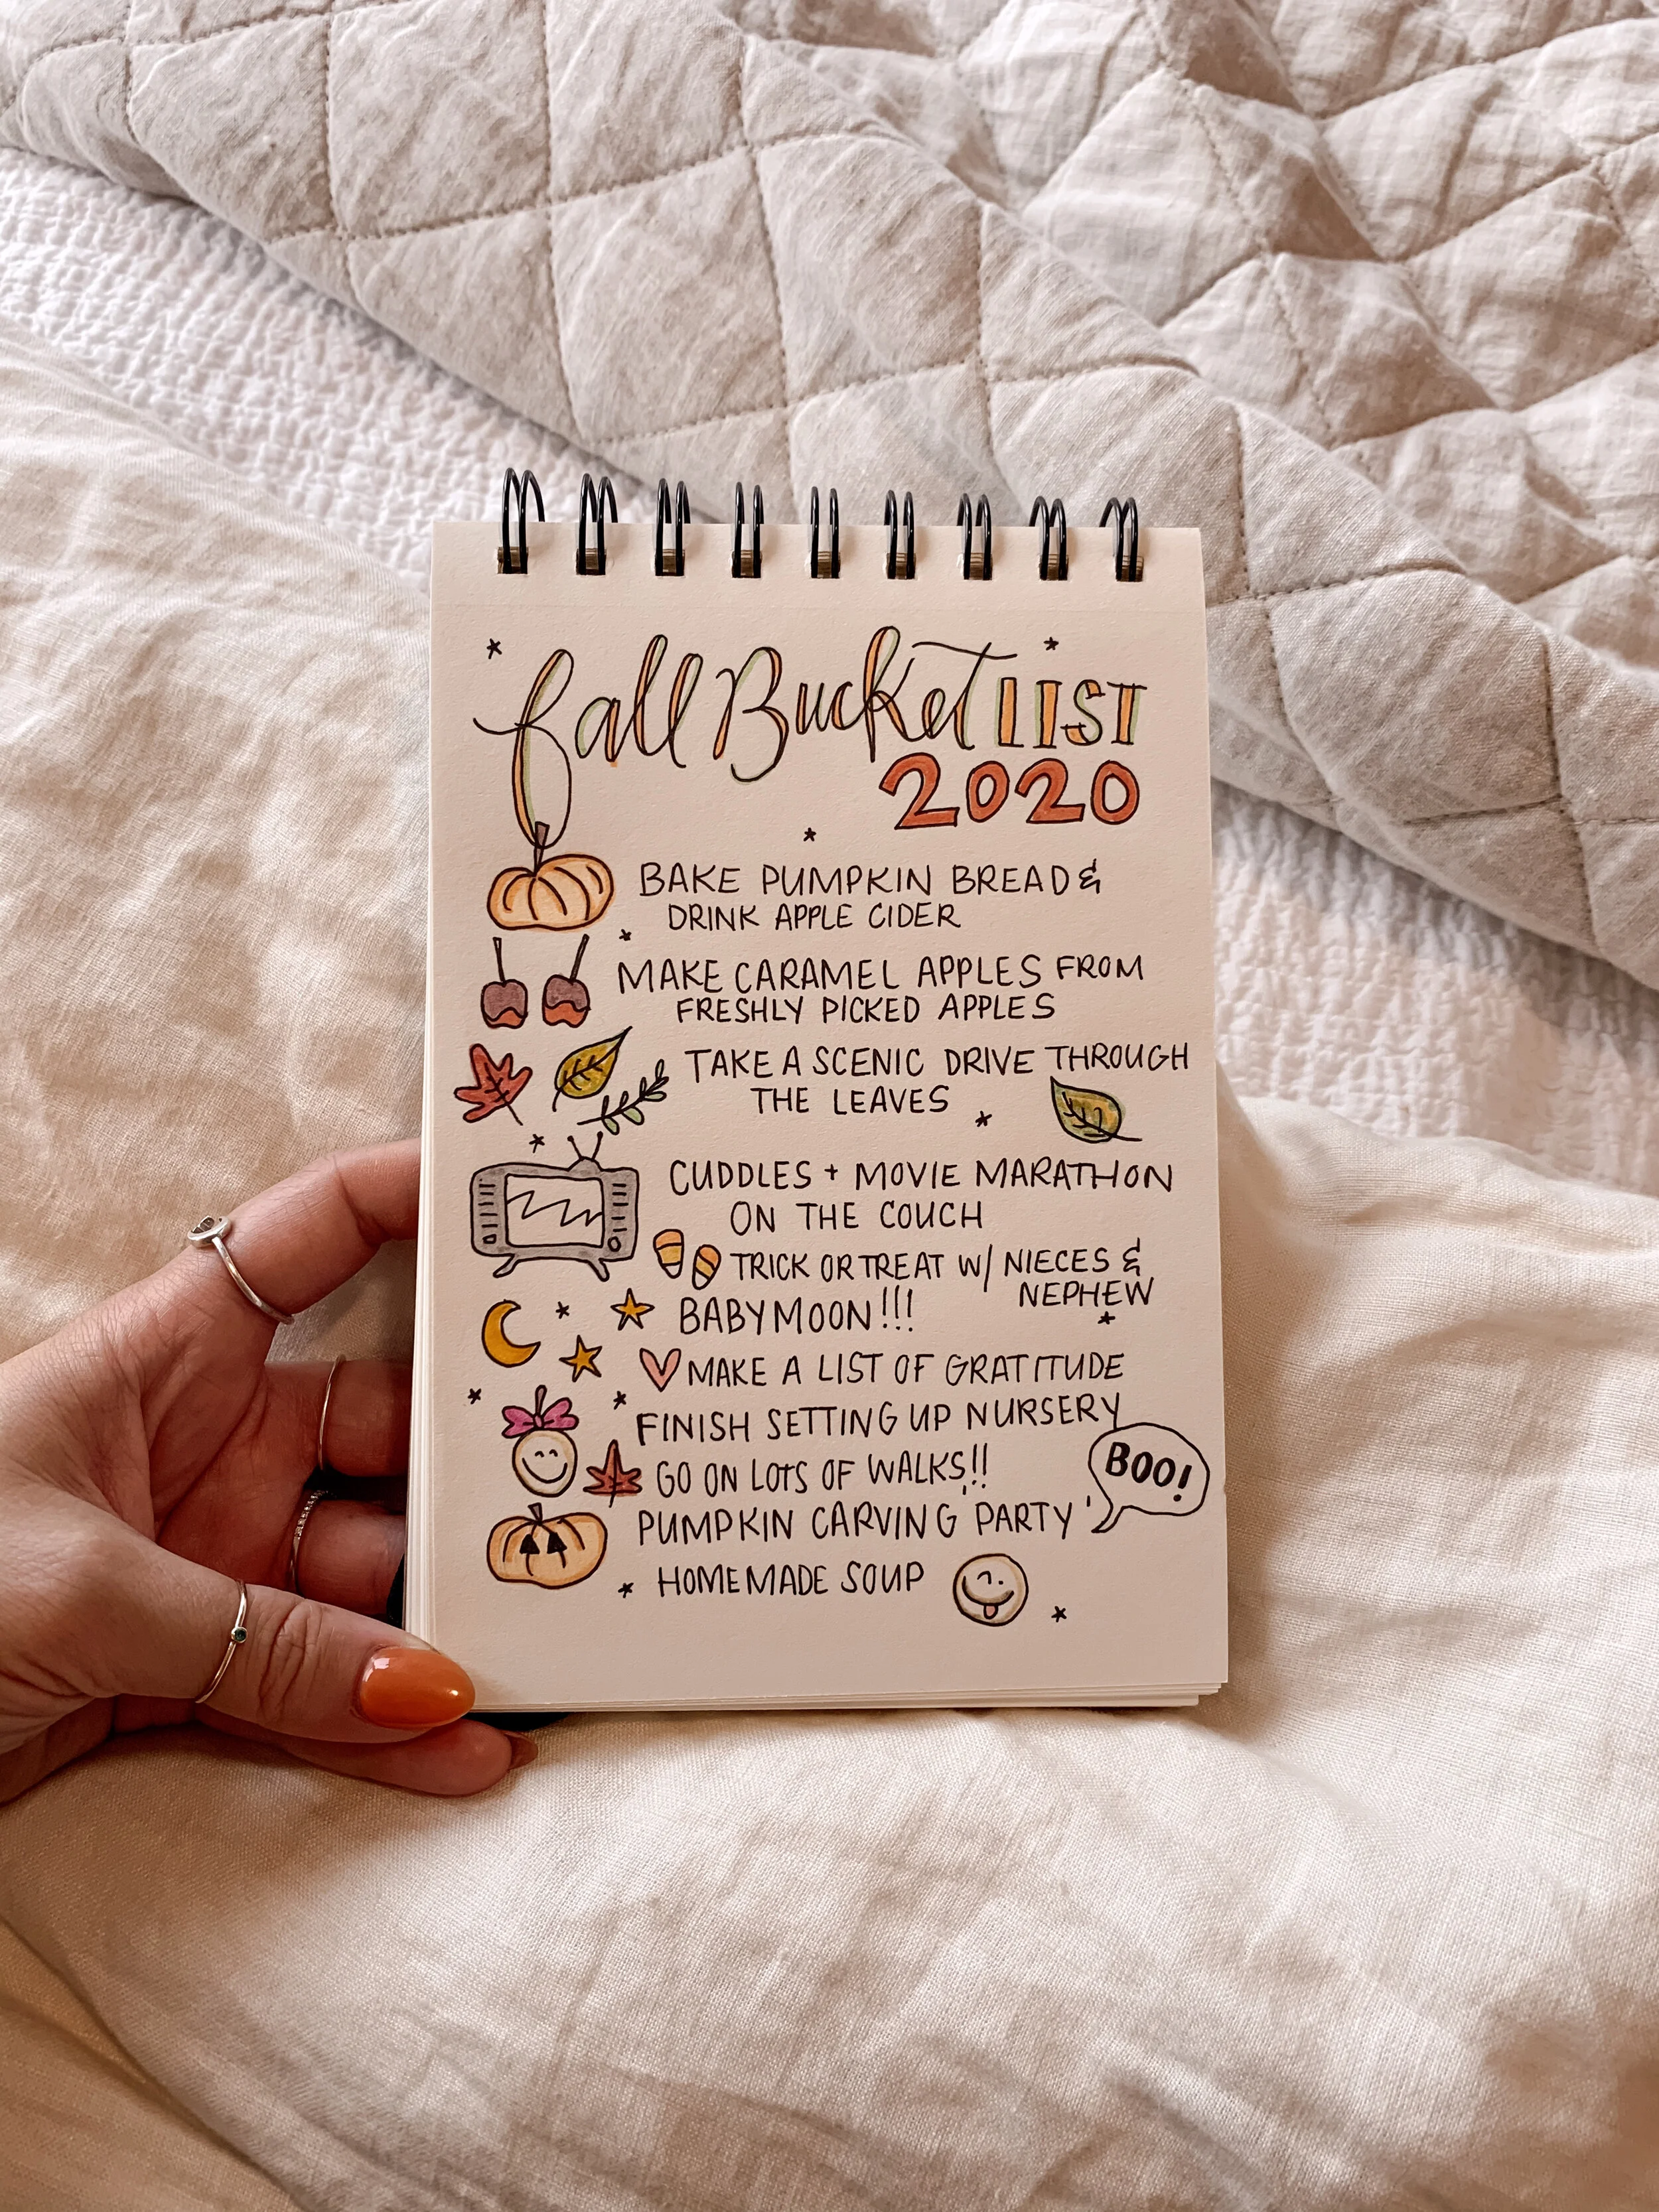 fall Bucket LIST
2020
BAKE PUMPKIN BREAD &
DRINK APPLE CIDER
MAKE CARAMEL APPLES FROM
FRESHLY PICKED APPLES
TAKE A SCENIC DRIVE THROUGH
THE LEAVES
CUDDLES + MOVIE MARATHON
ON THE COUCH
TRICK OR TREAT W/ NIECES &
NEPHEW
BABYMOON!!!
MAKE A LIST OF GRATITUDE
FINISH SETTING UP NURSERY
GO ON LOTS OF WALKS!!
BOO!
PUMPKIN CARVING 'PARTY'
HOMEMADE SOUP